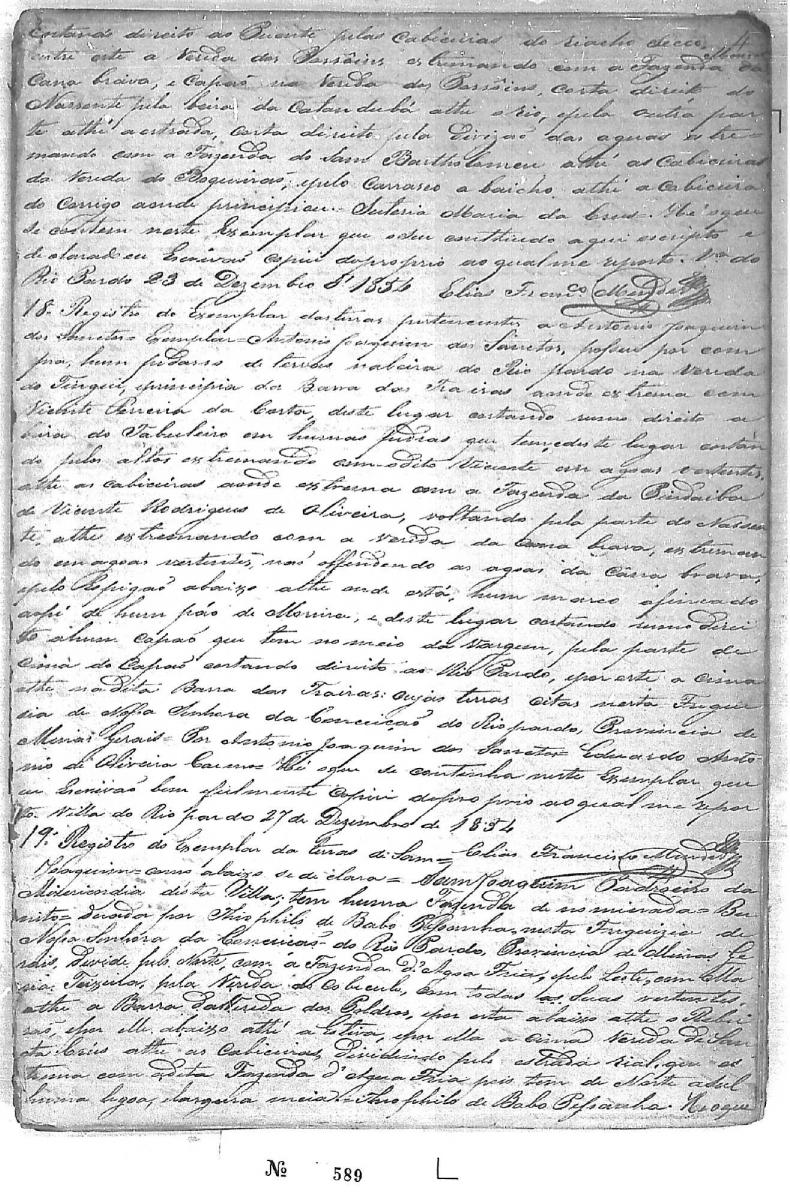 cortando direito ao Puente pelas Cabiceiras do riacho secco,
entre este a Verida dos Passains, extremando com a Fazenda da
Cana brava, e Capaõ na Verida dos Passains, corta direito do
Nassente pela beira da Catanduba athe o Rio, e pela outra par
te athé a estrada, corta direito pela Divizaõ das agoas extre-
mando com a Fazenda do Sam Bartholomeu athé as Cabiceiras
da Verida do Boqueiraõ, e pelo Carrasco a baicho athé a Cabiceira
do Corrigo aonde principiou - Suteria Maria da Crus - Hé o que
se contem neste Exemplar que o seu constituido aqui escripto e
declarad eu Escrivaõ copiei do proprio ao qual me reporto. Va do
Rio Pardo 23 de Dezembro de 1854 Elias Franco Mendes
18. Registro do Exemplar das terras pertencentes a Antonio Joaquim
dos Sanctos - Exemplar = Antonio Joaquim dos Sanctos, possui por com
pra, hum pedasso de terras na beira do Rio pardo na Verida
do Tingui, e principia da Barra das Trairas aonde extrema com
Vicente Pereira da Costa, deste lugar cortando rumo direito a
beira do Tabuleiro em humas pedras que tem, e deste lugar cortan
do pelos altos extremando com o dito Vicente em agoas vertentes,
athe as cabiceiras aonde extrema com a Fazenda da Pindaiba
de Vicente Rodrigues de Oliveira, voltando pela parte do Nassen
te, athe extremando com a verida da Cana brava, extreman
do em agoas vertentes, naõ offendendo as agoas da Canna brava,
e pelo Espigaõ abaixo athe onde está, hum marco afincado
ao pé de hum páo de Moreira, e deste lugar cortando rumo direi
to a hum capaõ que tem no meio da Vargem, pela parte de
cima do Capaõ cortando direito ao Rio Pardo, e por este a cima
athe na dita Barra das Trairas: cujas terras citas nesta Fregue
zia de Nossa Senhora da Conceiçaõ do Rio pardo, Provincia de
Minas Gerais = Por Antonio Joaquim dos Sanctos Eduardo Anto
nio de Oliveira = Hé o que se continha neste Exemplar que
eu Escrivaõ bem fielmente copiei do proprio ao qual me repor
to. Villa do Rio pardo 27 de Dezembro de 1854
19. Registro do Exemplar da terras de Sam = Elias Francisco Mendes
Joaquim = como abaixo se declara = Sam Joaquim Padroeiro da
Misericordia desta Villa, tem huma Fazenda denominada = Bu
rito = doada por Theophilo de Babo Pessanha, nesta Freguizia de
Nossa Senhora da Conceicaõ do Rio Pardo, Provincia de Minas Ge
rais, Divide pelo Norte, com a Fazenda d'Agoa Fria, e pelo Leste, com
Teixeira, pela Verida do, com todas as suas vertentes,
athe a Barra da Verida dos Poldros, e por esta abaixo athe o Ribei
raõ, e por elle abaixo athé a Estiva, e por ella a cima Verida de San
ta Crus athe as cabiceiras, Dividindo pela estrada rial, que ex
trema com a dita Fazenda d'Agua Fria pois tem de Norte a Sul
huma legoa, e largura meia = Theophilo de Babo Pessanha. He o que
Nº 589